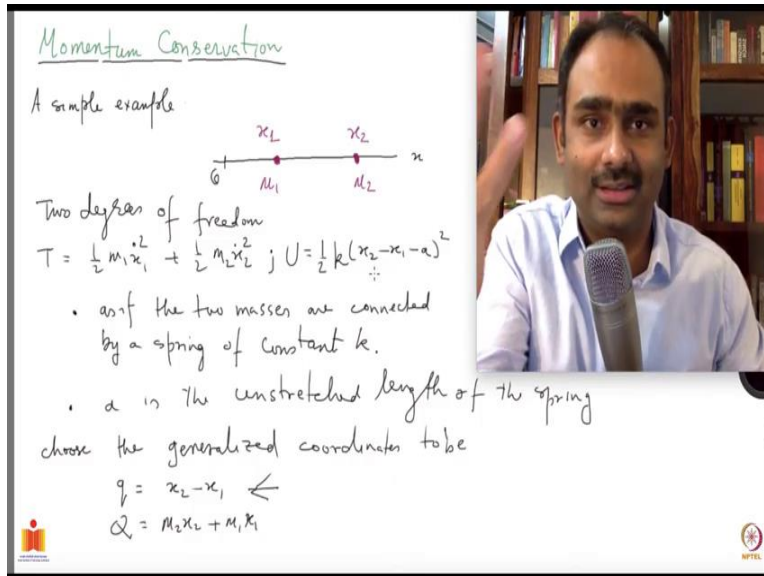 Momentum Conservation
A simple example
x1 x2
x
0
M1 M2
Two degrees of freedom
T = ½ m₁ẋ₁² + ½ m₂ẋ₂² ; U = ½ k(x₂-x₁-a)²
• as if the two masses are connected
by a spring of constant k.
• a is the unstretched length of th spring
choose the generalized coordinates to be
q = x₂-x₁ ←
Q = M₂x₂ + M₁x₁
NPTEL